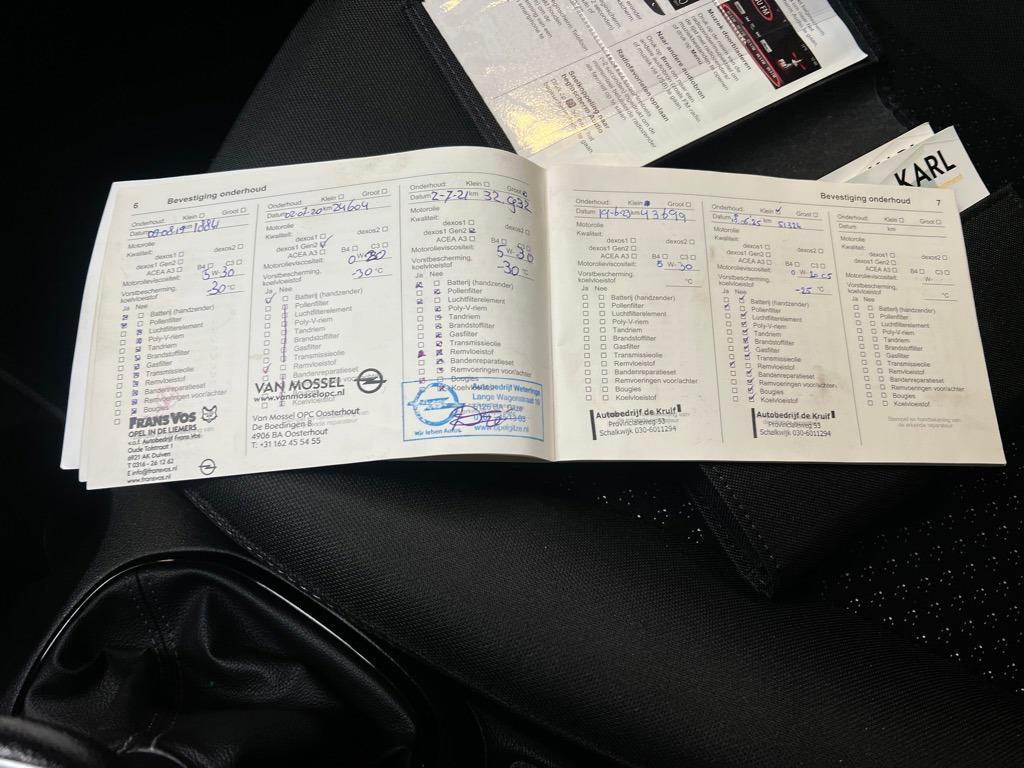 Muziek doorbladeren
Naar andere audiobron
Radiofavorieten opslaan
KARL
6
Bevestiging onderhoud
Onderhoud: Klein Groot
Datum 09-08-19 km 18841
Motorolie
Kwaliteit:
dexos1 dexos2
dexos1 Gen2
ACEA A3 B4 C3
Motorolieviscositeit: 5 W-30
Vorstbescherming, koelvloeistof -30 °C
Ja Nee
Batterij (handzender)
Pollenfilter
Luchtfilterelement
Poly-V-riem
Tandriem
Brandstoffilter
Gasfilter
Transmissieolie
Remvloeistof
Bandenreparatieset
Remvoeringen voor/achter
Bougies
FRANS VOS
OPEL IN DE LIEMERS
v.o.f. Autobedrijf Frans Vos
Oude Tolstraat 1
6921 AK Duiven
T 0316 - 26 12 62
E info@fransvos.nl
www.fransvos.nl
Onderhoud: Klein Groot
Datum 02-07-20 km 24604
Motorolie
Kwaliteit:
dexos1 dexos2
dexos1 Gen2
ACEA A3 B4 C3
Motorolieviscositeit: 0 W-30
Vorstbescherming, koelvloeistof -30 °C
Ja Nee
Batterij (handzender)
Pollenfilter
Luchtfilterelement
Poly-V-riem
Tandriem
Brandstoffilter
Gasfilter
Transmissieolie
Remvloeistof
Bandenreparatieset
VAN MOSSEL
www.vanmosselopc.nl
Koelvloeistof
Van Mossel OPC Oosterhout
De Boedingen 8
4906 BA Oosterhout
T: +31 162 45 54 55
Onderhoud: Klein Groot
Datum 2-7-21 km 32.932
Motorolie
Kwaliteit:
dexos1 dexos2
dexos1 Gen2
ACEA A3 B4 C3
Motorolieviscositeit: 5 W-30
Vorstbescherming, koelvloeistof -30 °C
Ja Nee
Batterij (handzender)
Pollenfilter
Luchtfilterelement
Poly-V-riem
Tandriem
Brandstoffilter
Gasfilter
Transmissieolie
Remvloeistof
Bandenreparatieset
Bougies
Koelvloeistof
Autobedrijf Weterings
Lange Wagenstraat
5126 BA Gilze
Wir leben Autos.
www.opelgilze.nl
Bevestiging onderhoud
7
Onderhoud: Klein Groot
Datum 19-6-23 km 43699
Motorolie
Kwaliteit:
dexos1 dexos2
dexos1 Gen2
ACEA A3 B4 C3
Motorolieviscositeit: 5 W-30
Vorstbescherming, koelvloeistof °C
Ja Nee
Batterij (handzender)
Pollenfilter
Luchtfilterelement
Poly-V-riem
Tandriem
Brandstoffilter
Gasfilter
Transmissieolie
Remvloeistof
Bandenreparatieset
Remvoeringen voor/achter
Bougies
Koelvloeistof
Autobedrijf de Kruif
Provincialeweg 53
Schalkwijk 030-6011294
Onderhoud: Klein Groot
km 51324
Motorolie
Kwaliteit:
dexos1 dexos2
dexos1 Gen2
ACEA A3 B4 C3
Motorolieviscositeit: 0 W-20 C5
Vorstbescherming, koelvloeistof -25 °C
Ja Nee
Batterij (handzender)
Pollenfilter
Luchtfilterelement
Poly-V-riem
Tandriem
Brandstoffilter
Gasfilter
Transmissieolie
Remvloeistof
Bandenreparatieset
Remvoeringen voor/achter
Bougies
Koelvloeistof
Autobedrijf de Kruif
Provincialeweg 53
Schalkwijk 030-6011294
Onderhoud: Klein Groot
Datum km
Motorolie
Kwaliteit:
dexos1 dexos2
dexos1 Gen2
ACEA A3 B4 C3
Motorolieviscositeit: W-
Vorstbescherming, koelvloeistof °C
Ja Nee
Batterij (handzender)
Pollenfilter
Luchtfilterelement
Poly-V-riem
Tandriem
Brandstoffilter
Gasfilter
Transmissieolie
Remvloeistof
Bandenreparatieset
Remvoeringen voor/achter
Bougies
Koelvloeistof
Stempel en handtekening van de erkende reparateur